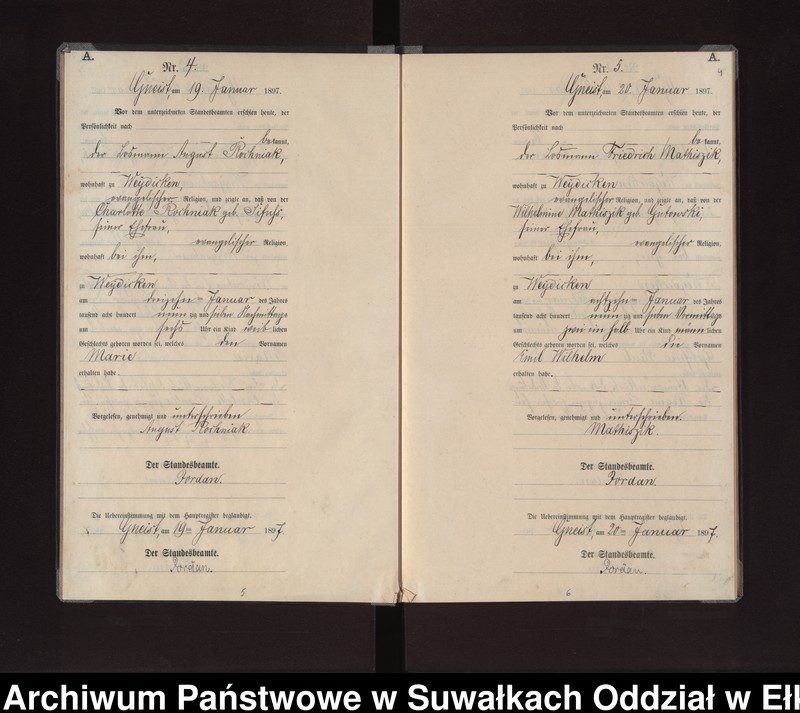 A.
Nr. 4.
Gneist, am 19. Januar 1897.
Vor dem unterzeichneten Standesbeamten erschien heute, der
Persönlichkeit nach
be kannt,
der Losmann August Rochniak,
wohnhaft zu Weydicken,
evangelischer Religion, und zeigte an, daß von der
Charlotte Rochniak geb.
seiner Ehefrau,
evangelischer Religion,
wohnhaft bei ihm,
zu Weydicken
am dreizehnten Januar des Jahres
tausend acht hundert neun zig und sieben Nachmittags
um sechs Uhr ein Kind weib lichen
Geschlechts geboren worden sei, welches den Vornamen
Marie
erhalten habe.
Vorgelesen, genehmigt und unterschrieben
August Rochniak.
Der Standesbeamte.
Jordan.
Die Uebereinstimmung mit dem Hauptregister beglaubigt.
Gneist, am 19ten Januar 1897.
Der Standesbeamte.
Jordan.
5
A.
Nr. 5.
Gneist, am 20. Januar 1897.
Vor dem unterzeichneten Standesbeamten erschien heute, der
Persönlichkeit nach
be kannt,
der Losmann Friedrich Mathiszik,
wohnhaft zu Weydicken
evangelischer Religion, und zeigte an, daß von der
Wilhelmine Mathiszik geb. Gutowski,
seiner Ehefrau,
evangelischer Religion,
wohnhaft bei ihm,
zu Weydicken
am achtzehnten Januar des Jahres
tausend acht hundert neun zig und sieben Vormittags
um zwei ein halb Uhr ein Kind männ lichen
Geschlechts geboren worden sei, welches die Vornamen
Emil Wilhelm
erhalten habe.
Vorgelesen, genehmigt und unterschrieben.
Mathiszik.
Der Standesbeamte.
Jordan.
Die Uebereinstimmung mit dem Hauptregister beglaubigt.
Gneist, am 20ten Januar 1897.
Der Standesbeamte.
Jordan.
6
Archiwum Państwowe w Suwałkach Oddział w Ełk